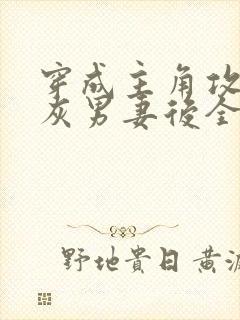 穿成主角攻
灰男妻後全
野地貴日黄